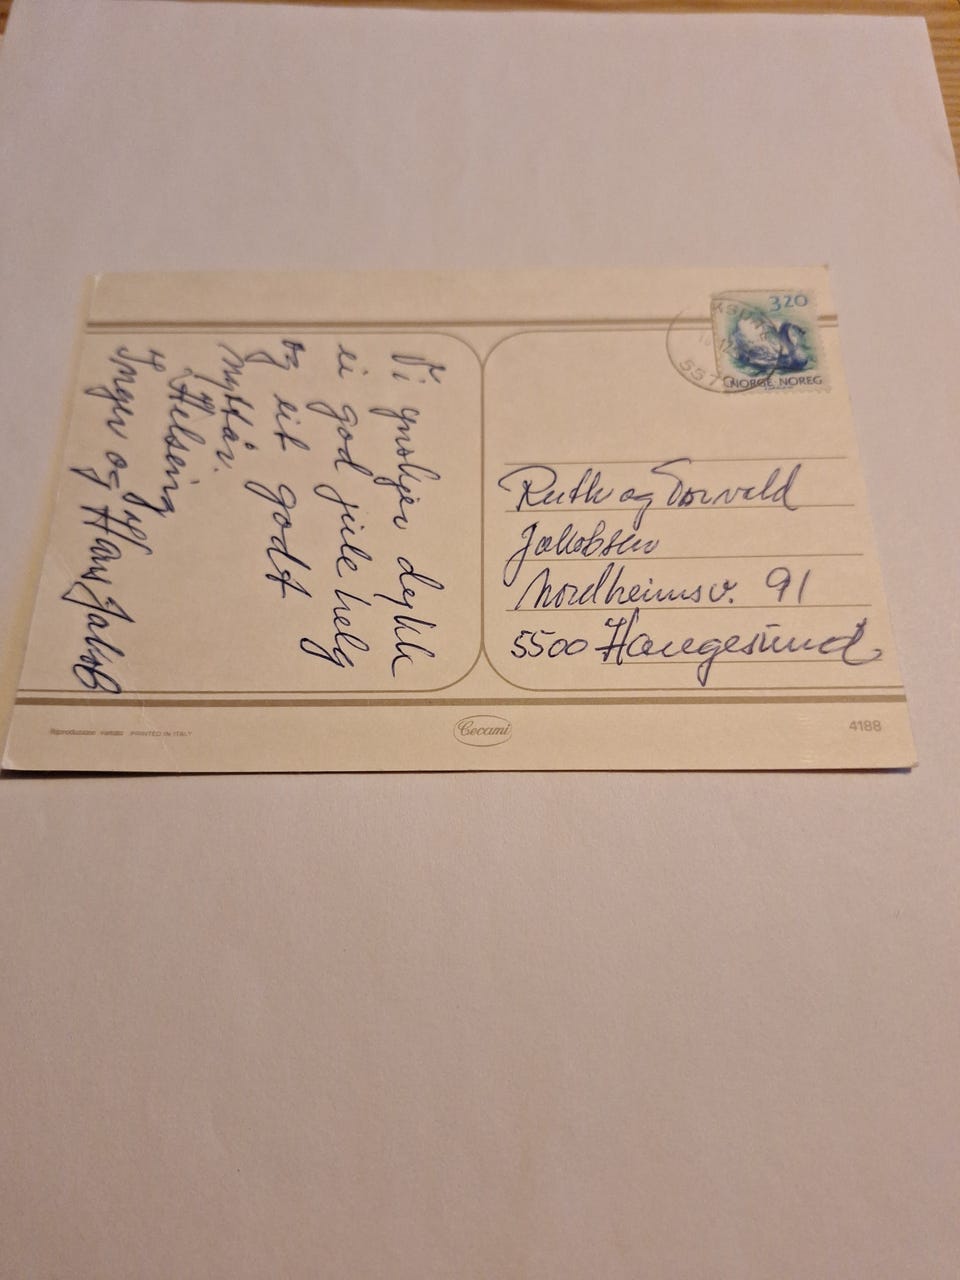 Vi ynskjer dykk
ei god jule helg
og eit godt
nyttår.
Helsing
Inger og Hans Jakob
320
NORGE NOREG
557
Ruth og Torvald
Jakobsen
Nordheimsv. 91
5500 Haugesund
Riproduzione vietata PRINTED IN ITALY
Cecami
4188